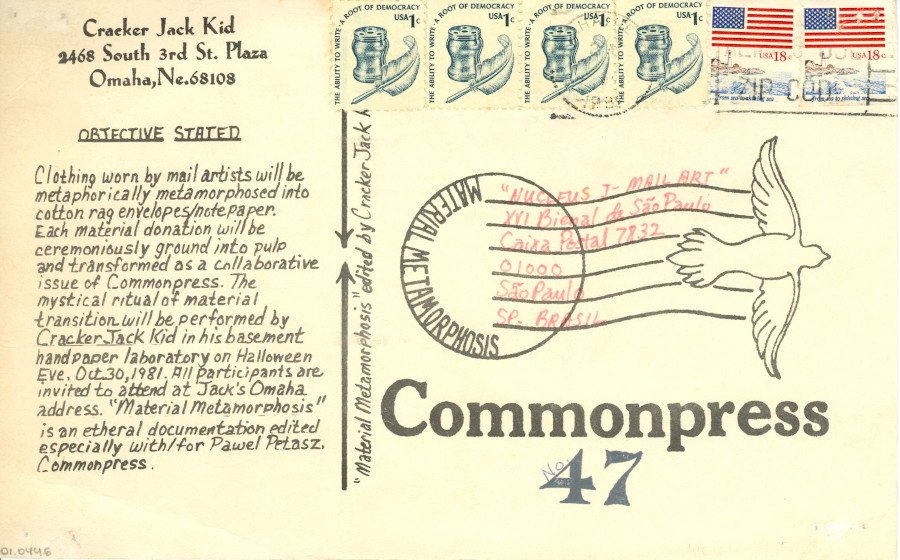 Cracker Jack Kid
2468 South 3rd St. Plaza
Omaha, Ne. 68108
OBJECTIVE STATED
Clothing worn by mail artists will be
metaphorically metamorphosed into
cotton rag envelopes/notepaper.
Each material donation will be
ceremoniously ground into pulp
and transformed as a collaborative
issue of Commonpress. The
mystical ritual of material
transition will be performed by
Cracker Jack Kid in his basement
handpaper laboratory on Halloween
Eve, Oct. 30, 1981. All participants are
invited to attend at Jack's Omaha
address. "Material Metamorphosis"
is an etheral documentation edited
especially with/for Pawel Petasz.
Commonpress.
"Material Metamorphosis" edited by Cracker Jack
THE ABILITY TO WRITE·A ROOT OF DEMOCRACY
USA 1c
THE ABILITY TO WRITE·A ROOT OF DEMOCRACY
USA 1c
THE ABILITY TO WRITE·A ROOT OF DEMOCRACY
USA 1c
THE ABILITY TO WRITE·A ROOT OF DEMOCRACY
USA 1c
USA 18c
from sea to shining sea
USA 18c
from sea to shining sea
MATERIAL METAMORPHOSIS
"NUCLEUS I - MAIL ART"
XVI Bienal de São Paulo
Caixa Postal 7832
01000
São Paulo
SP. BRASIL
Commonpress
No. 47
01.0446